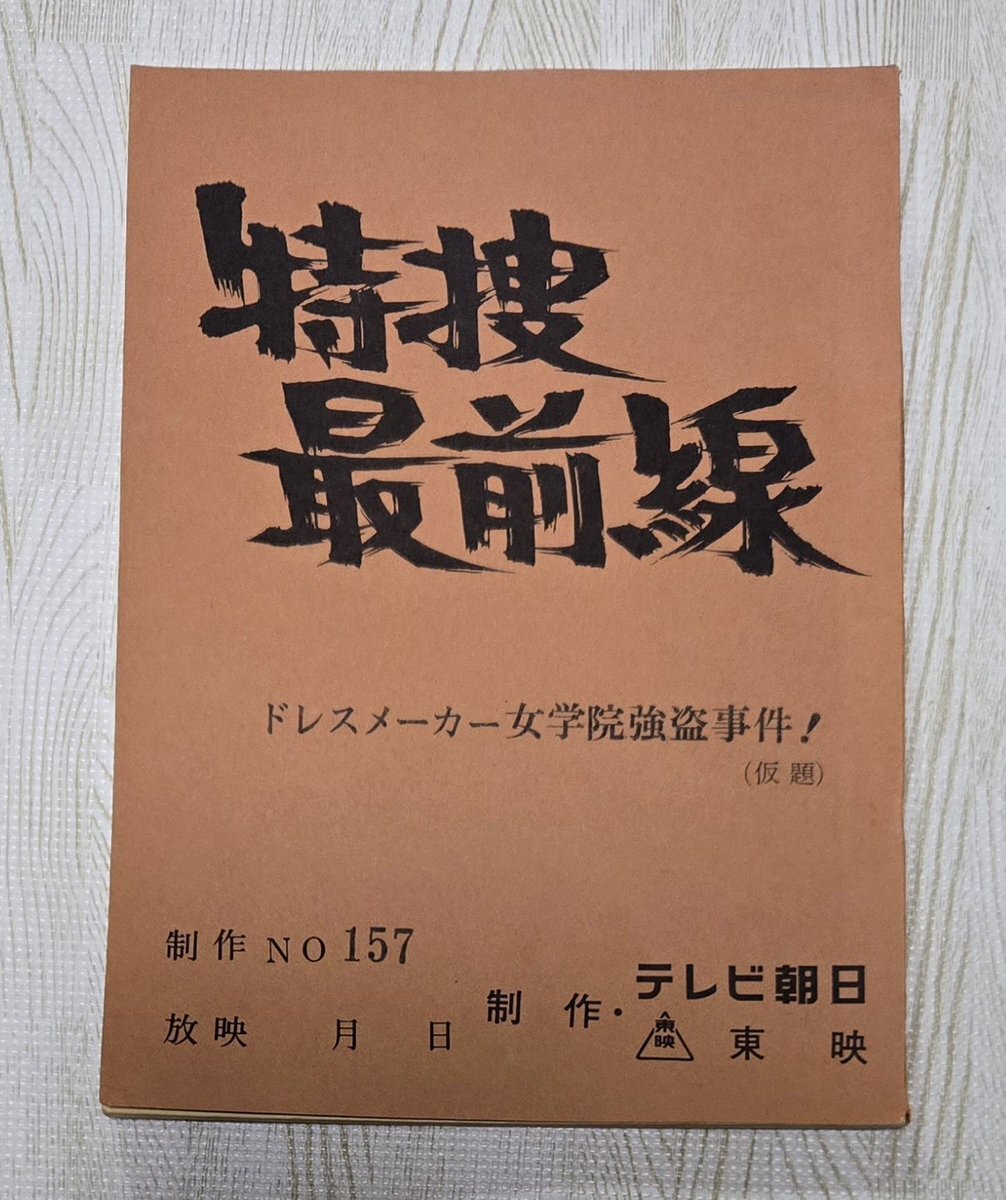 特捜
最前線
ドレスメーカー女学院強盗事件！
（仮題）
制作 NO 157
放映　月　日
制作・テレビ朝日
東映 東映